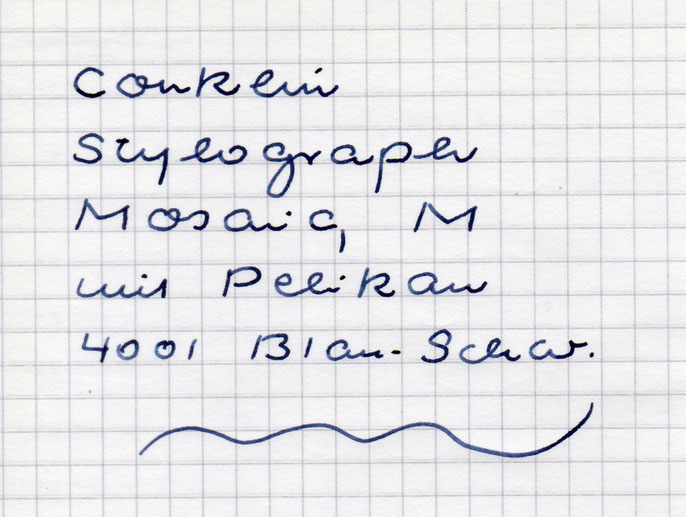 Conklin
Stylograph
Mosaic, M
mit Pelikan
4001 Blau-Schw.